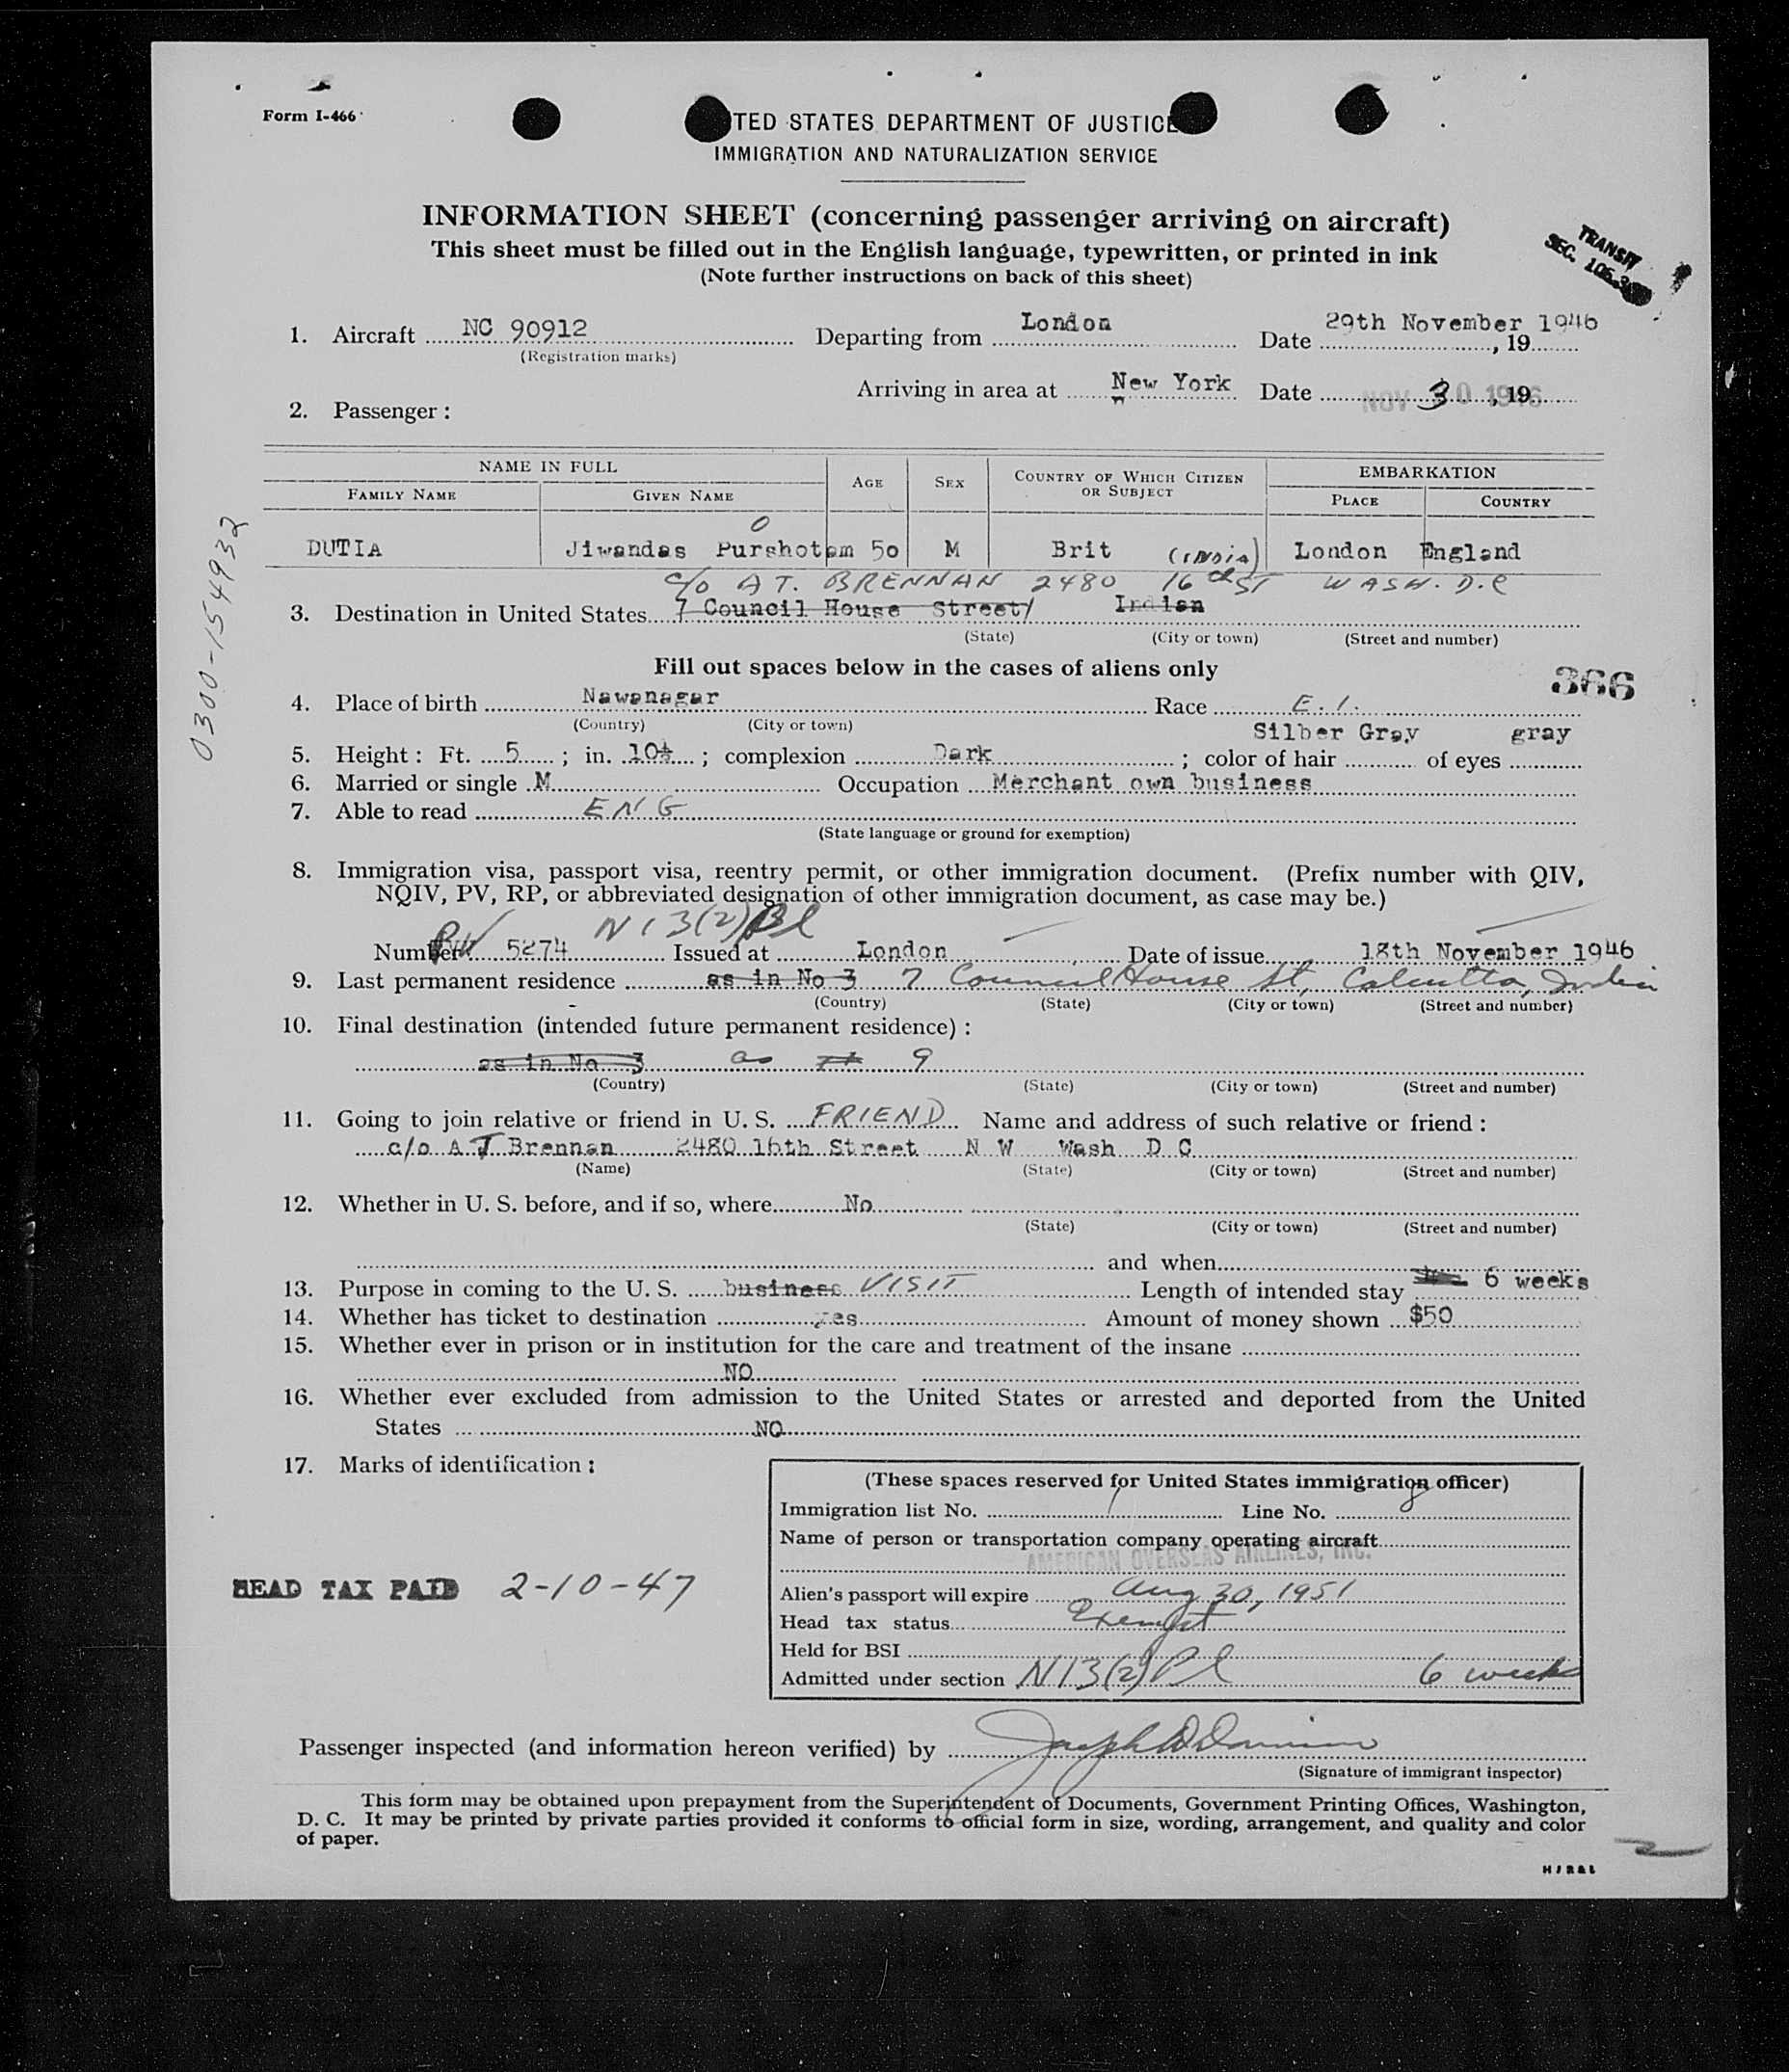 Form I-466
TED STATES DEPARTMENT OF JUSTICE
IMMIGRATION AND NATURALIZATION SERVICE
INFORMATION SHEET (concerning passenger arriving on aircraft)
This sheet must be filled out in the English language, typewritten, or printed in ink
(Note further instructions on back of this sheet)
TRANSIT
SEC. 106.3
1. Aircraft NC 90912 Departing from London Date 29th November 1946, 19
(Registration marks)
Arriving in area at New York Date NOV 30 1946, 19
2. Passenger:
NAME IN FULL AGE SEX COUNTRY OF WHICH CITIZEN OR SUBJECT EMBARKATION
FAMILY NAME GIVEN NAME PLACE COUNTRY
O
DUTIA Jiwandas Purshotam 50 M Brit (INDIA) London England
c/o A T. BRENNAN 2480 16th ST WASH. D.C
3. Destination in United States 7 Council House Street/ Indian
(State) (City or town) (Street and number)
Fill out spaces below in the cases of aliens only
366
0300-154932
4. Place of birth Nawanagar Race E.I.
(Country) (City or town)
5. Height: Ft. 5; in. 10½; complexion Dark; color of hair Silber Gray of eyes gray
6. Married or single M Occupation Merchant own business
7. Able to read ENG
(State language or ground for exemption)
8. Immigration visa, passport visa, reentry permit, or other immigration document. (Prefix number with QIV,
NQIV, PV, RP, or abbreviated designation of other immigration document, as case may be.)
N 13(2) Bl
Number PV 5274 Issued at London Date of issue 18th November 1946
9. Last permanent residence as in No 3 7 Council House St, Calcutta, India
(Country) (State) (City or town) (Street and number)
10. Final destination (intended future permanent residence):
as in No 3 as 9
(Country) (State) (City or town) (Street and number)
11. Going to join relative or friend in U. S. FRIEND Name and address of such relative or friend:
c/o A J Brennan 2480 16th Street N W Wash D C
(Name) (State) (City or town) (Street and number)
12. Whether in U. S. before, and if so, where No
(State) (City or town) (Street and number)
and when
13. Purpose in coming to the U. S. business VISIT Length of intended stay 6 weeks
14. Whether has ticket to destination yes Amount of money shown $50
15. Whether ever in prison or in institution for the care and treatment of the insane
NO
16. Whether ever excluded from admission to the United States or arrested and deported from the United
States NO
17. Marks of identification:
(These spaces reserved for United States immigration officer)
Immigration list No. 1 Line No. 8
Name of person or transportation company operating aircraft
AMERICAN OVERSEAS AIRLINES, INC.
HEAD TAX PAID 2-10-47
Alien's passport will expire Aug 30, 1951
Head tax status Exempt
Held for BSI
Admitted under section N 13(2) Pl 6 weeks
Passenger inspected (and information hereon verified) by Joseph
(Signature of immigrant inspector)
This form may be obtained upon prepayment from the Superintendent of Documents, Government Printing Offices, Washington,
D. C. It may be printed by private parties provided it conforms to official form in size, wording, arrangement, and quality and color
of paper.